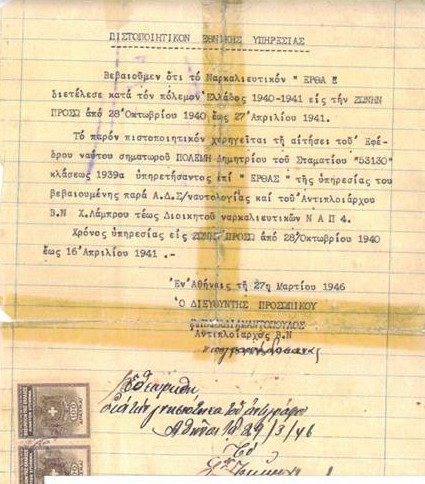 ΠΙΣΤΟΠΟΙΗΤΙΚΟΝ ΕΘΝΙΚΗΣ ΥΠΗΡΕΣΙΑΣ
Βεβαιοῦμεν ὅτι τό Ναρκαλιευτικόν " ΕΡΘΑ
διετέλεσε κατά τόν πόλεμον Ἑλλάδος 1940-1941 εἰς τήν ΖΩΝΗΝ
ΠΡΟΣΩ ἀπό 28 Ὀκτωβρίου 1940 ἕως 27 Ἀπριλίου 1941.
Τό παρόν πιστοποιητικόν χορηγεῖται τῇ αἰτήσει τοῦ Ἐφέ
δρου ναύτου σηματωροῦ ΠΟΛΕΜΗ Δημητρίου τοῦ Σταματίου "53130"
κλάσεως 1939α ὑπηρετήσαντος ἐπί " ΕΡΘΑΣ " τῆς ὑπηρεσίας του
βεβαιουμένης παρά Α.Δ.Σ/ναυτολογίας καί τοῦ Ἀντιπλοιάρχου
Β.Ν Χ.Λάμπρου τέως Διοικητοῦ ναρκαλιευτικῶν Ν Α Π 4.
Χρόνος ὑπηρεσίας εἰς ΖΩΝΗΝ ΠΡΟΣΩ ἀπό 28 Ὀκτωβρίου 1940
ἕως 16 Ἀπριλίου 1941 .-
Ἐν Ἀθήναις τῇ 27ῃ Μαρτίου 1946
Ὁ ΔΙΕΥΘΥΝΤΗΣ ΠΡΟΣΩΠΙΚΟΥ
Ἀντιπλοίαρχος Β.Ν
Ἐθεωρήθη
διά τήν γνησιότητα τοῦ ἀντιγράφου
Ἀθῆναι 29/3/46